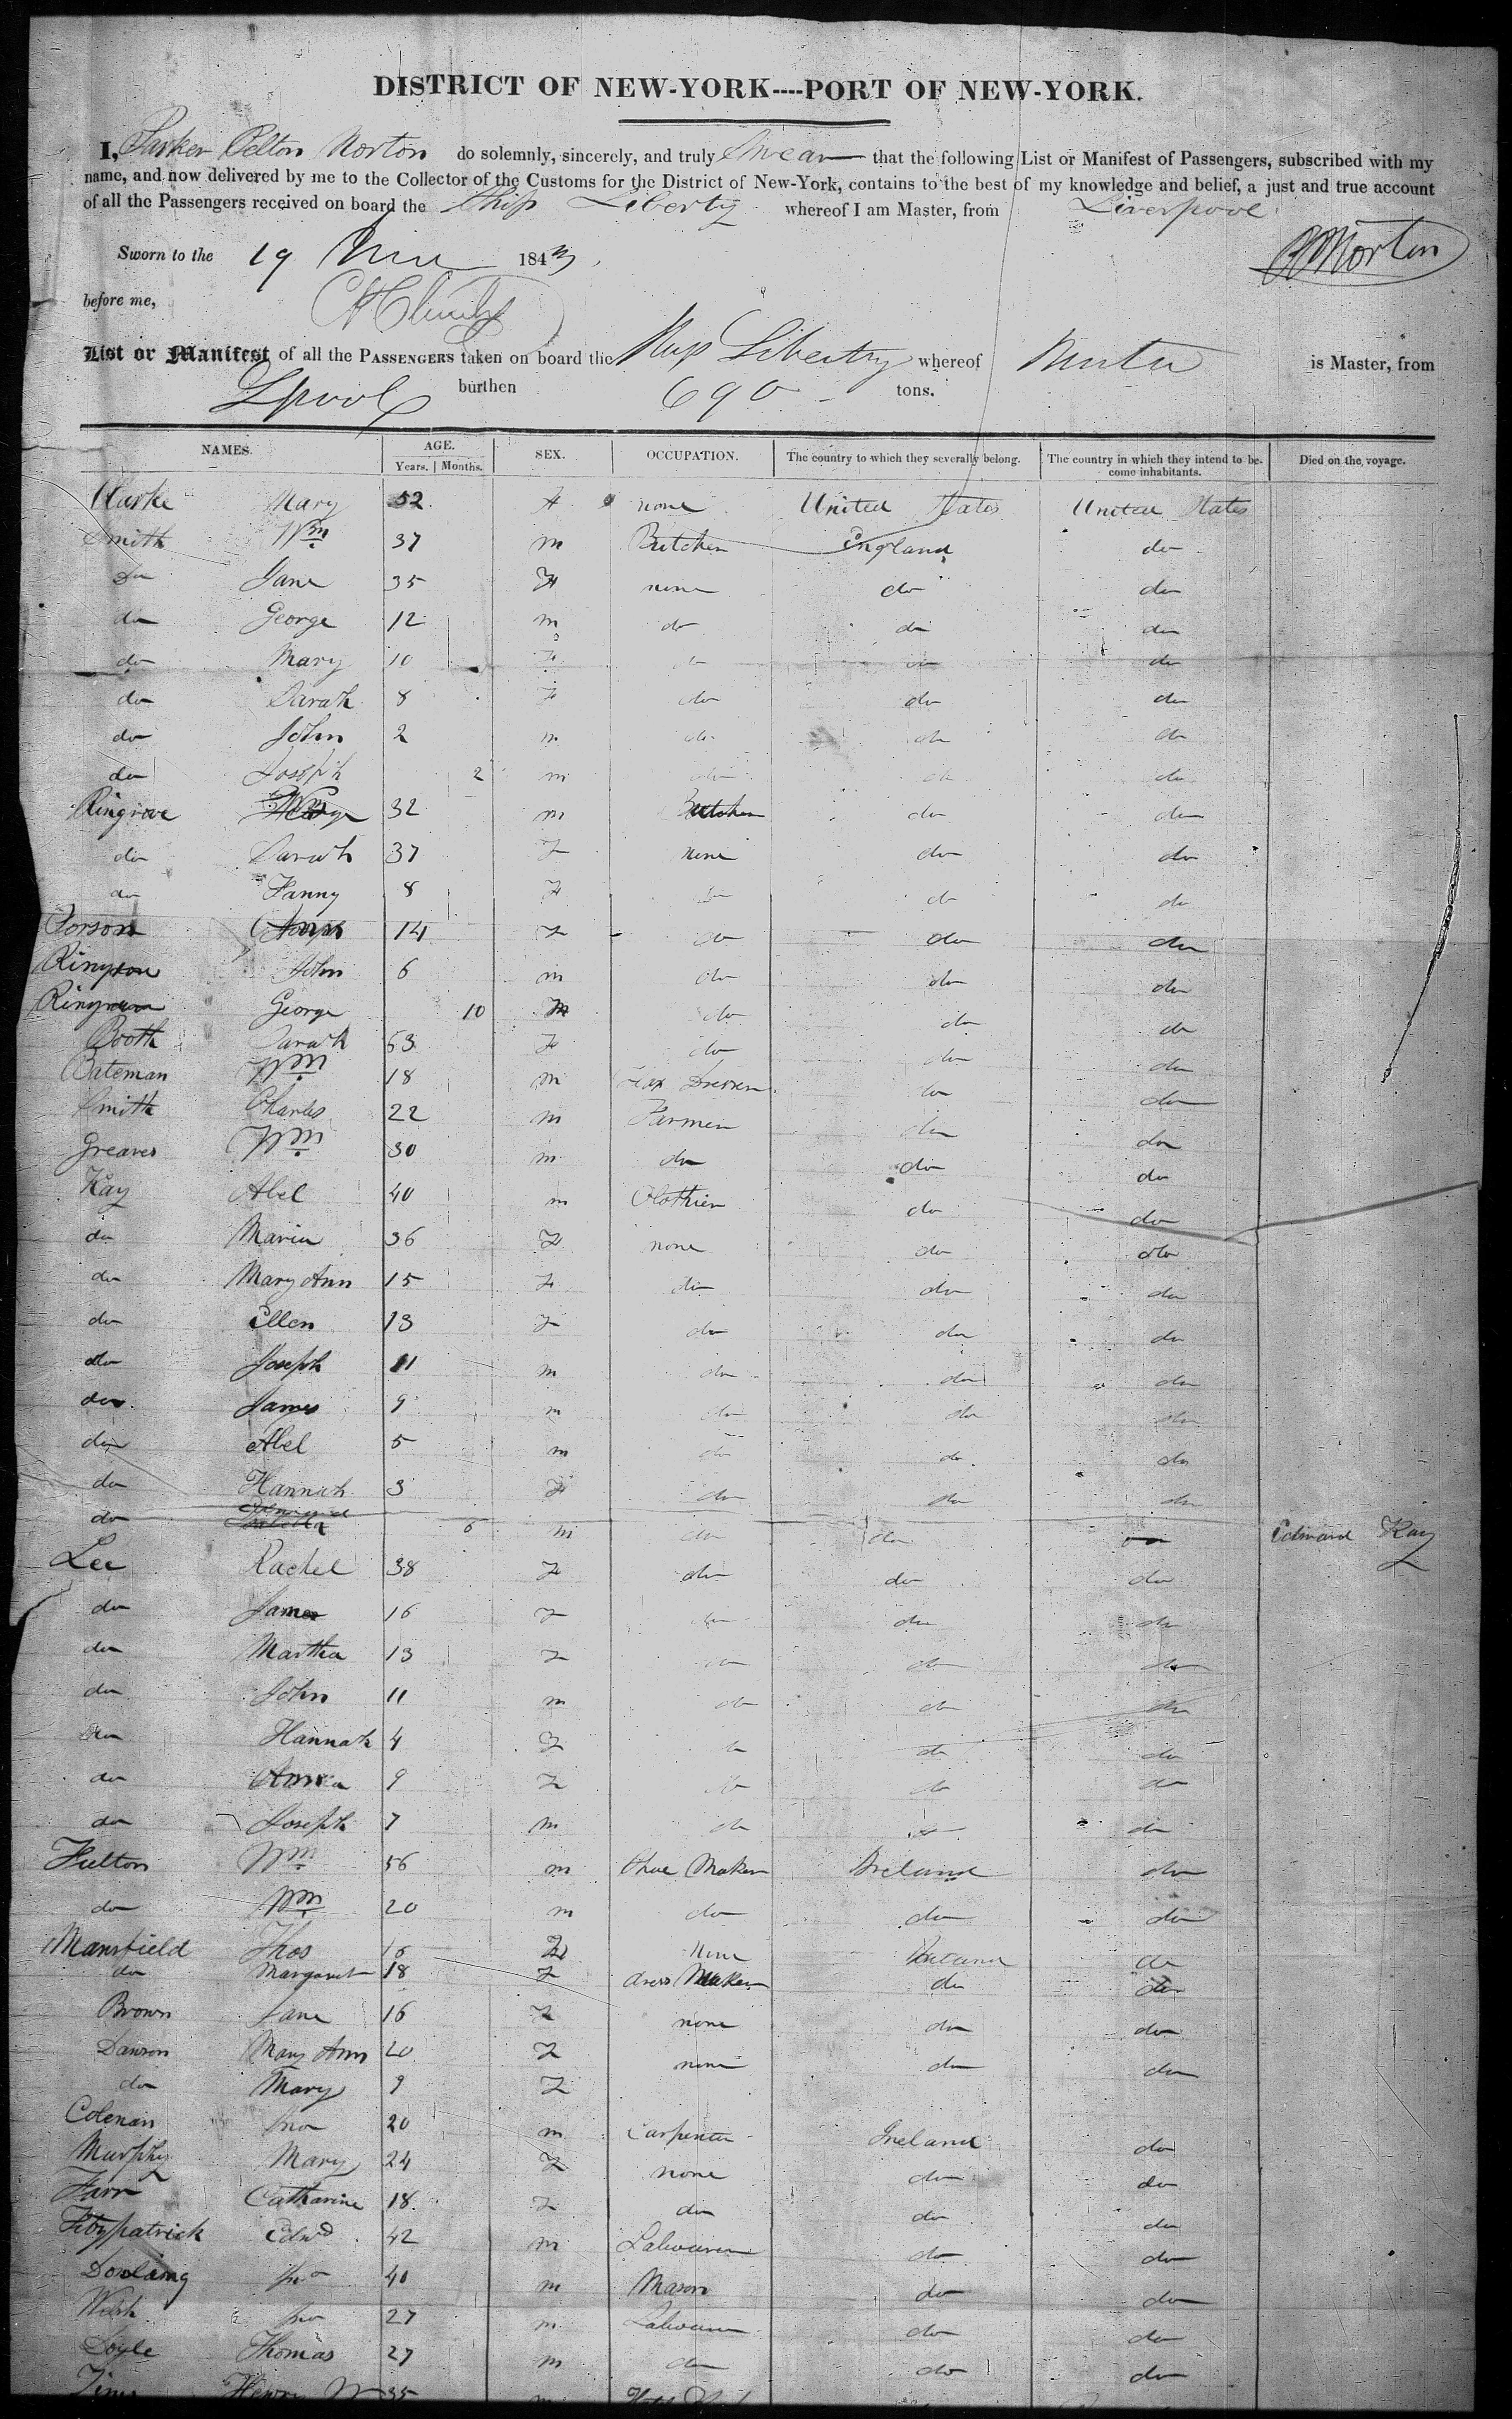 DISTRICT OF NEW-YORK----PORT OF NEW-YORK.
I, Parker Pelton Norton do solemnly, sincerely, and truly Swear that the following List or Manifest of Passengers, subscribed with my
name, and now delivered by me to the Collector of the Customs for the District of New-York, contains to the best of my knowledge and belief, a just and true account
of all the Passengers received on board the Ship Liberty whereof I am Master, from Liverpool
Norton
Sworn to the 19 1843
before me,
List or Manifest of all the PASSENGERS taken on board the Ship Liberty whereof is Master, from
Lpool burthen 690 tons.
NAMES. AGE. SEX. OCCUPATION. The country to which they severally belong. The country in which they intend to be- Died on the voyage.
Years. Months. come inhabitants.
Clarke Mary 52 F none United States United States
Smith Wm 37 m Butcher England do
Do Jane 35 F none do do
do George 12 m do do do
do Mary 10 F do do do
do Sarah 8 F do do do
do John 2 m do do do
do Joseph 2 m do do do
Ringrove 32 m Butcher do do
do Sarah 37 F none do do
do Fanny 8 F do do do
Porson 14 F do do do
Ringrove John 6 m do do do
Ringrove George 10 M do do do
Booth Sarah 63 F do do do
Bateman Wm 18 m Flax Dresser do do
Smith Charles 22 m Farmer do do
Greaves Wm 30 m do do do
Kay Abel 40 m Clothier do do
do Maria 36 F none do do
do Mary Ann 15 F do do do
do Ellen 13 F do do do
do Joseph 11 m do do do
do James 9 m do do do
do Abel 5 m do do do
do Hannah 3 F do do do
do 6 m do do do Edward Kay
Lee Rachel 38 F do do do
do 16 F do do do
do Martha 13 F do do do
do John 11 m do do do
do Hannah 4 F do do do
do 9 F do do do
do Joseph 7 m do do do
Fulton Wm 56 m Shoe Maker Ireland do
do Wm 20 m do do do
Mansfield Thos 16 none Ireland do
do Margaret 18 F dress Maker do do
Brown Jane 16 F none do do
Dawson Mary Ann 20 F none do do
do Mary 9 F
Coleman Jno 20 m Carpenter Ireland do
Murphy Mary 24 F none do do
Farr Catharine 18 F do do do
Fitzpatrick Edwd 42 m Labourer do do
Jno 40 m Mason do do
Jno 27 m Labourer do do
Doyle Thomas 27 m do do do
Henry 35